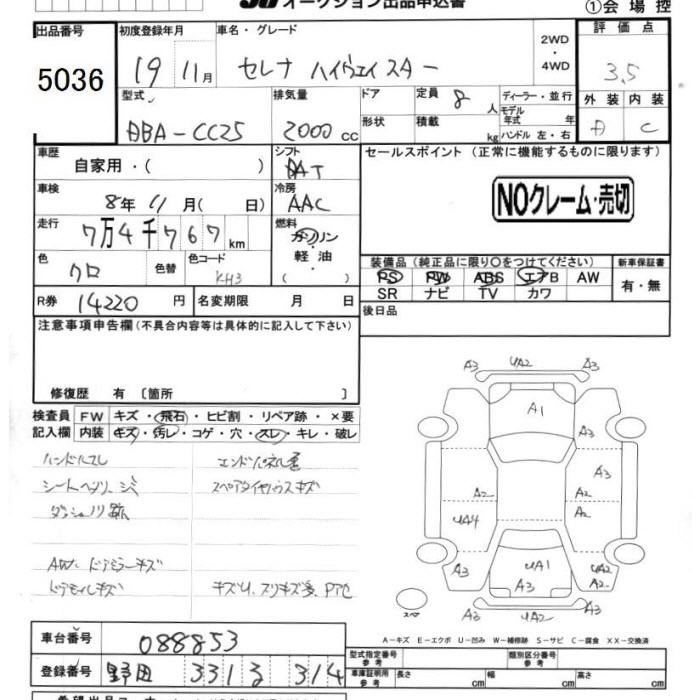 オークション出品申込書
①会場控
出品番号 初度登録年月 車名・グレード 2WD・4WD 評価点
5036 19 11月 セレナ ハイウェイスター 3.5
型式 排気量 ドア形状 定員 8人 積載 kg ディーラー・並行 モデル年式 年 ハンドル 左・右 外装 内装
DBA-CC25 2000cc A C
車歴 自家用・( ) シフト DAT セールスポイント (正常に機能するものに限ります)
車検 8年11月( 日) 冷房 AAC NOクレーム・売切
走行 7万4千767km 燃料 ガソリン・軽油・( )
色 クロ 色替 色コード KH3
装備品(純正品に限り○をつけてください) 新車保証書
PS PW ABS エアB AW 有・無
SR ナビ TV カワ
R券 14220円 名変期限 月 日 後日品
注意事項申告欄(不具合内容等は具体的に記入して下さい)
修復歴 有〔箇所 〕
検査員 FW キズ・飛石・ヒビ割・リペア跡・×要
記入欄 内装 キズ・汚レ・コゲ・穴・スレ・キレ・破レ
ハンドルスレ
シートヘタリ、シミ スペアタイヤハウスキズ
AW、ドアミラーキズ
ドアモールキズ
A3 UA2 A3
A1
A3 A3
A3
A2 A2
UA4 A2
A3 UA1 UA2
A3 A2
A3 UA2 A3
スペ
A-キズ E-エクボ U-凹み W-補修跡 S-サビ C-腐食 XX-交換済
車台番号 088853 型式指定番号 参考 類別区分番号 参考
登録番号 野田 331 る 314 車庫証明用 参考 長さ cm 幅 cm 高さ cm